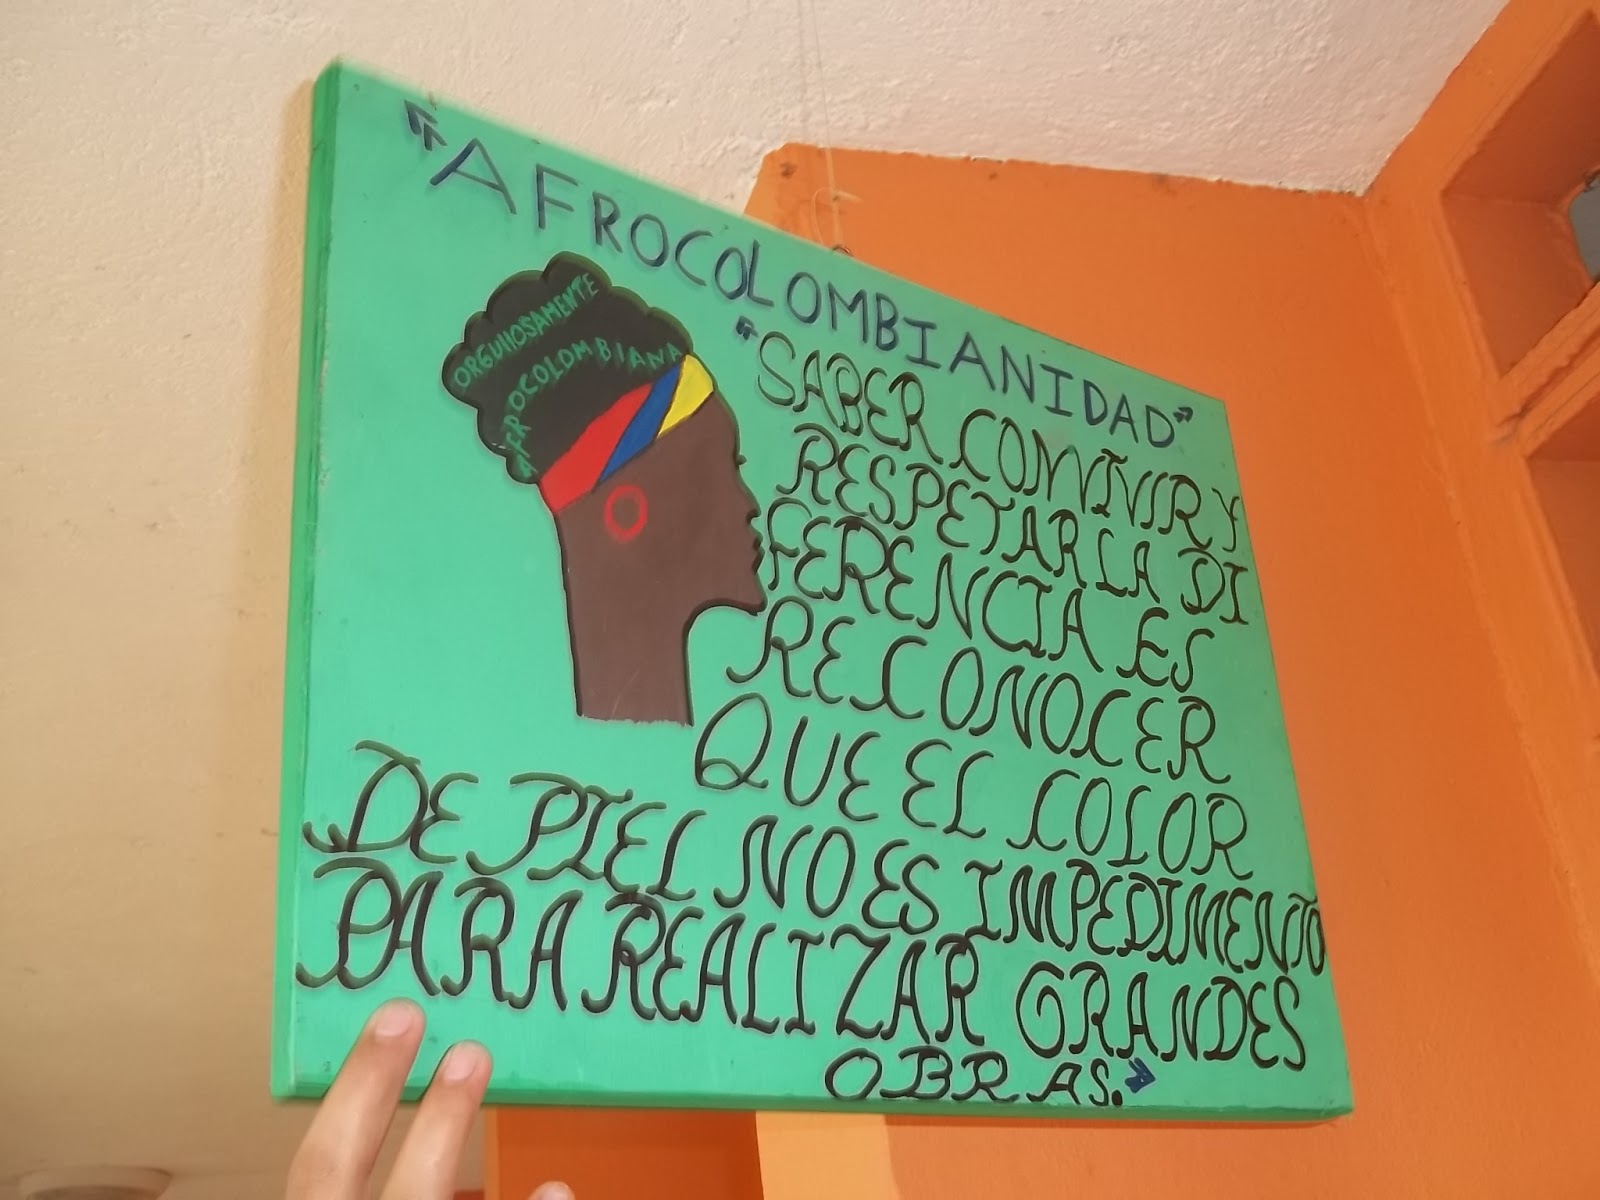 "AFROCOLOMBIANIDAD"
ORGULLOSAMENTE
AFROCOLOMBIANA
"SABER CONVIVIR Y
RESPETAR LA DI
FERENCIA ES
RECONOCER
QUE EL COLOR
DE PIEL NO ES IMPEDIMENTO
PARA REALIZAR GRANDES
OBRAS."